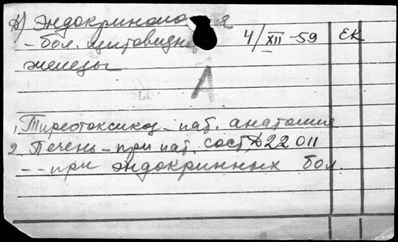 А) Эндокриноло я
- бол. щитовидн 4/XII-59 ЕК
железы
Л
1. Тиреотоксикоз - пат. анатомия
2. Печень - при пат. сост. Д22011
-- при эндокринных бол.